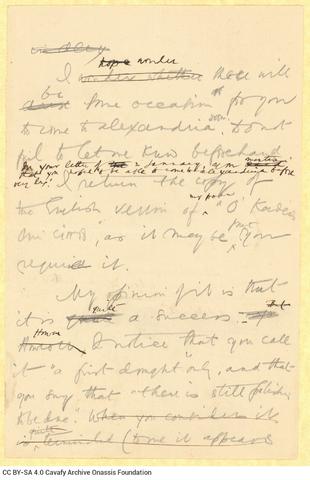 hope wonder
I wonder whether there will
be some occasion for you
to come to Alexandria soon. Do not
fail to let me know beforehand.
In your letter of 2 January you mention
that you hope to be able to come to Alexandria before
very long. I return the copy of
my poem
the English version of "Ο
", as it may be that you
require it.
My opinion is that
it is quite a success.
I notice that you call
it "a first draught" only, and that
you say that "there is still polishing
to be done". When you consider it
quite
is finished (to me it appears
CC BY-SA 4.0 Cavafy Archive Onassis Foundation